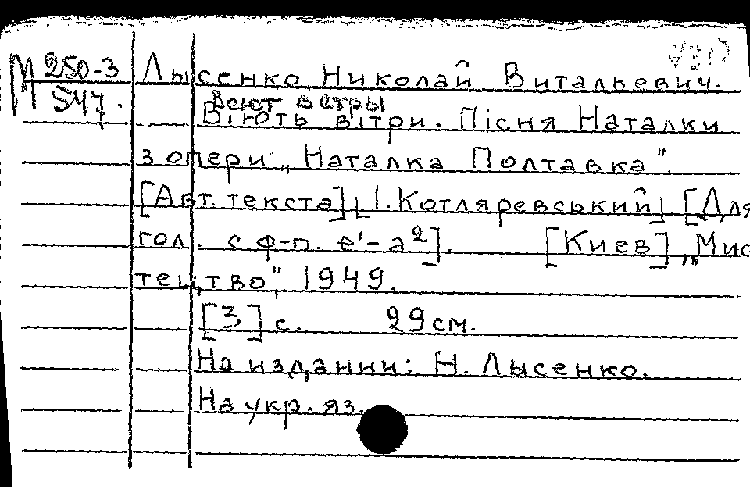 М 250-3 Лысенко Николай Витальевич.
547. Веют ветры
Віють вітри. Пісня Наталки
з опери „Наталка Полтавка".
[Авт. текста] І. Котляревський [Для
гол. с ф-п. e¹-a²]. [Киев] „Мис
тецтво", 1949.
[3] с. 29 см.
На издании: Н. Лысенко.
На укр. яз.